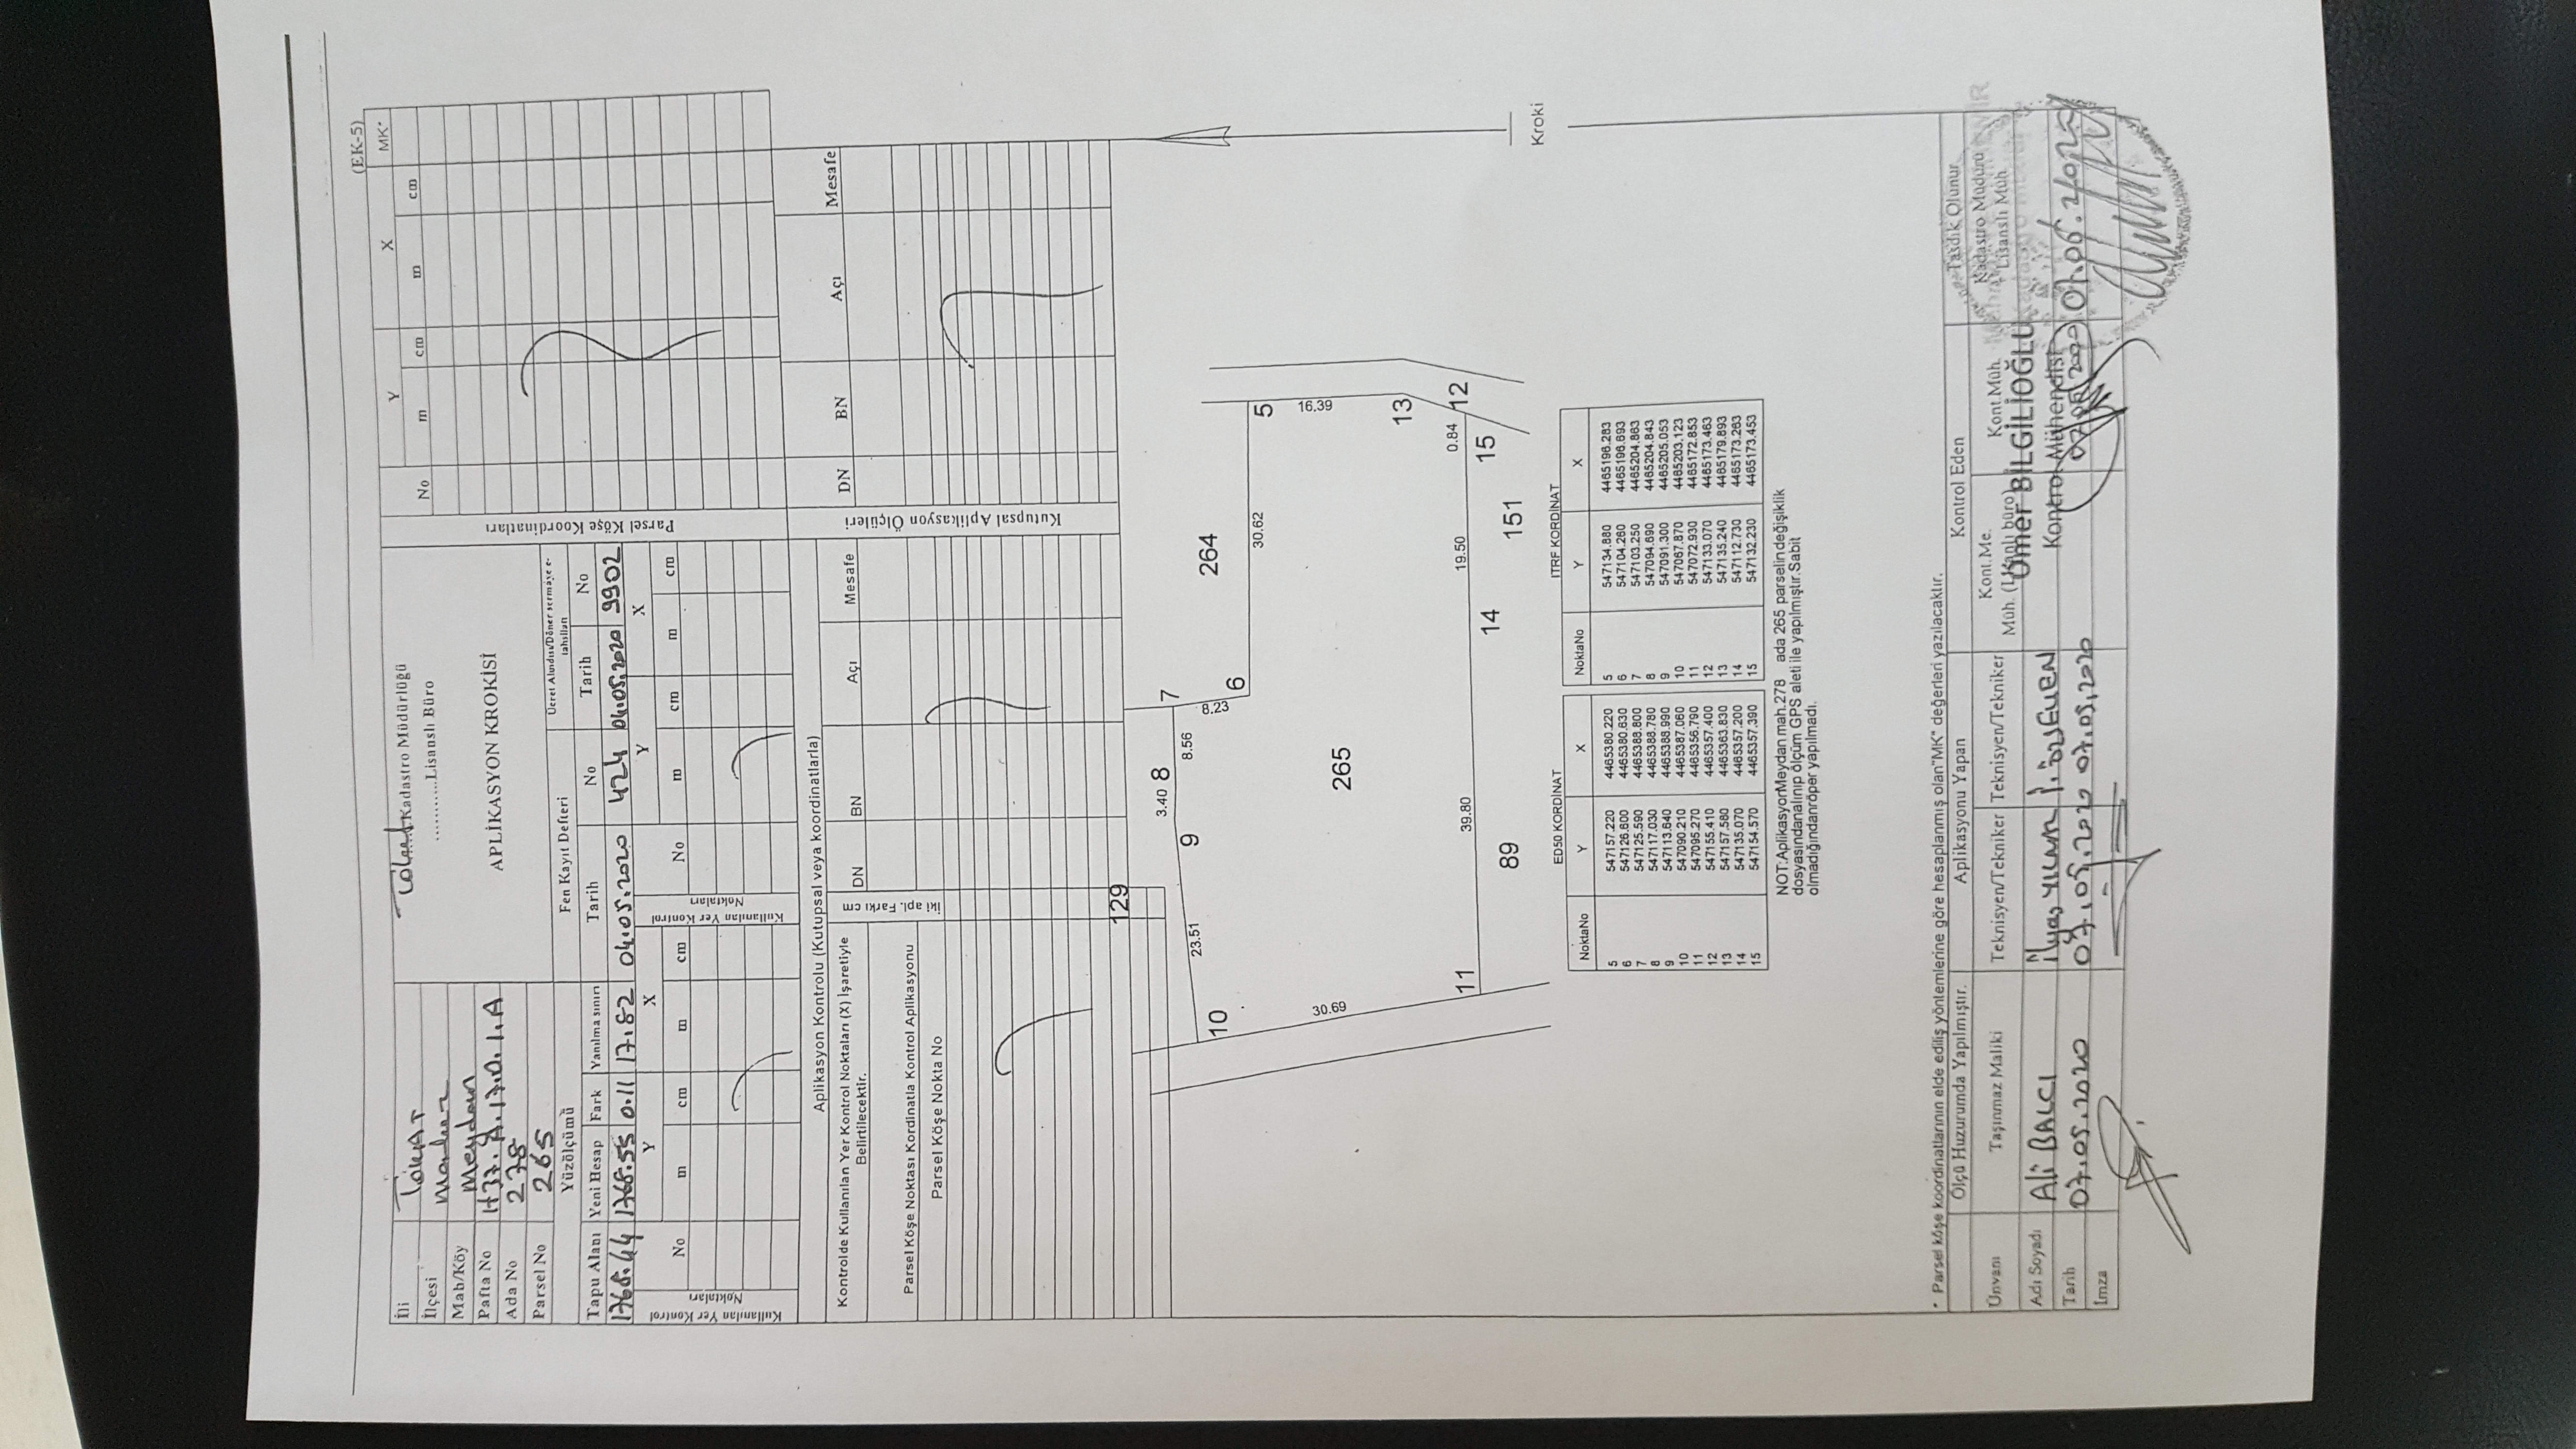 (EK-5)
İli TOKAT
İlçesi Merkez
Mah/Köy Meydan
Pafta No H37.A.17.D.1.A
Ada No 278
Parsel No 265
Tokat Kadastro Müdürlüğü
...........Lisanslı Büro
APLİKASYON KROKİSİ
Yüzölçümü
Fen Kayıt Defteri
Ücret Alındısı/Döner sermaye e-
tahsilatı
Tapu Alanı Yeni Hesap Fark Yanılma sınırı Tarih No Tarih No
1768.44 1768.55 0.11 17.82 04.05.2020 424 04.05.2020 9902
Kullanılan Yer Kontrol
Noktaları
No Y X
m cm m cm
Kullanılan Yer Kontrol
Noktaları
No Y X
m cm m cm
Parsel Köşe Koordinatları
No Y X MK*
m cm m cm
Aplikasyon Kontrolu (Kutupsal veya koordinatlarla)
Kontrolde Kullanılan Yer Kontrol Noktaları (X) İşaretiyle
Belirtilecektir.
Parsel Köşe Noktası Kordinatla Kontrol Aplikasyonu
Parsel Köşe Nokta No
İki apl. Farkı cm
DN BN Açı Mesafe
Kutupsal Aplikasyon Ölçüleri
DN BN Açı Mesafe
129
3.40 8 7
23.51 9 8.56
10 8.23 264
6
30.62 5
30.69 16.39
265
13
11 39.80 19.50 0.84 12
14 15
89 151
Kroki
ED50 KORDİNAT
NoktaNo Y X
5 547157.220 4465380.220
6 547126.600 4465380.630
7 547125.590 4465388.800
8 547117.030 4465388.780
9 547113.640 4465388.990
10 547090.210 4465387.060
11 547095.270 4465356.790
12 547155.410 4465357.400
13 547157.580 4465363.830
14 547135.070 4465357.200
15 547154.570 4465357.390
ITRF KORDİNAT
NoktaNo Y X
5 547134.880 4465196.283
6 547104.260 4465196.693
7 547103.250 4465204.863
8 547094.690 4465204.843
9 547091.300 4465205.053
10 547067.870 4465203.123
11 547072.930 4465172.853
12 547133.070 4465173.463
13 547135.240 4465179.893
14 547112.730 4465173.263
15 547132.230 4465173.453
NOT:AplikasyorMeydan mah.278 ada 265 parselin değişiklik
dosyasındanalınıp ölçüm GPS aleti ile yapılmıştır.Sabit
olmadığındanröper yapılmadı.
* Parsel köşe koordinatlarının elde ediliş yöntemlerine göre hesaplanmış olan"MK" değerleri yazılacaktır.
Ölçü Huzurumda Yapılmıştır. Aplikasyonu Yapan Kontrol Eden Tasdik Olunur
Ünvanı Taşınmaz Maliki Teknisyen/Tekniker Teknisyen/Tekniker
Kont.Me.
Müh. (Lisanlı büro)
Kont.Müh.
Kadastro Müdürü
Lisanslı Müh.
Ömer BİLGİLİOĞLU
Kontrol Mühendisi
Adı Soyadı Ali BALCI İlyas YILMAZ
Tarih 07.05.2020 07.05.2020 07.05.2020
İmza